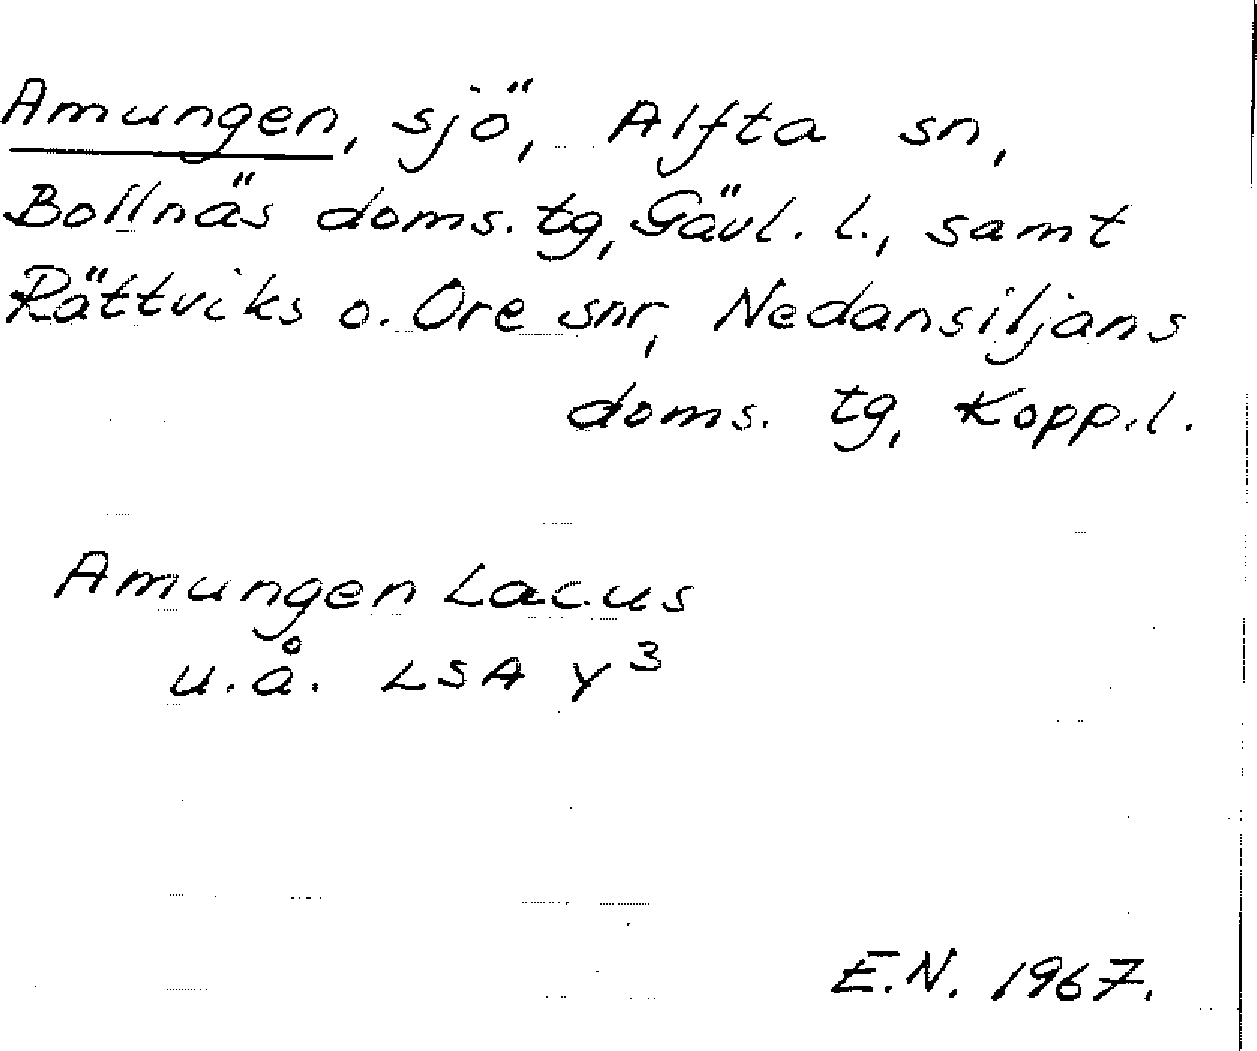 Amungen, sjö, Alfta sn,
Bollnäs doms. tg, Gävl. l., samt
Rättviks o. Ore snr, Nedansiljans
doms. tg, Kopp.l.
Amungen Lacus
u.å. LSA Y³
E.N. 1967.